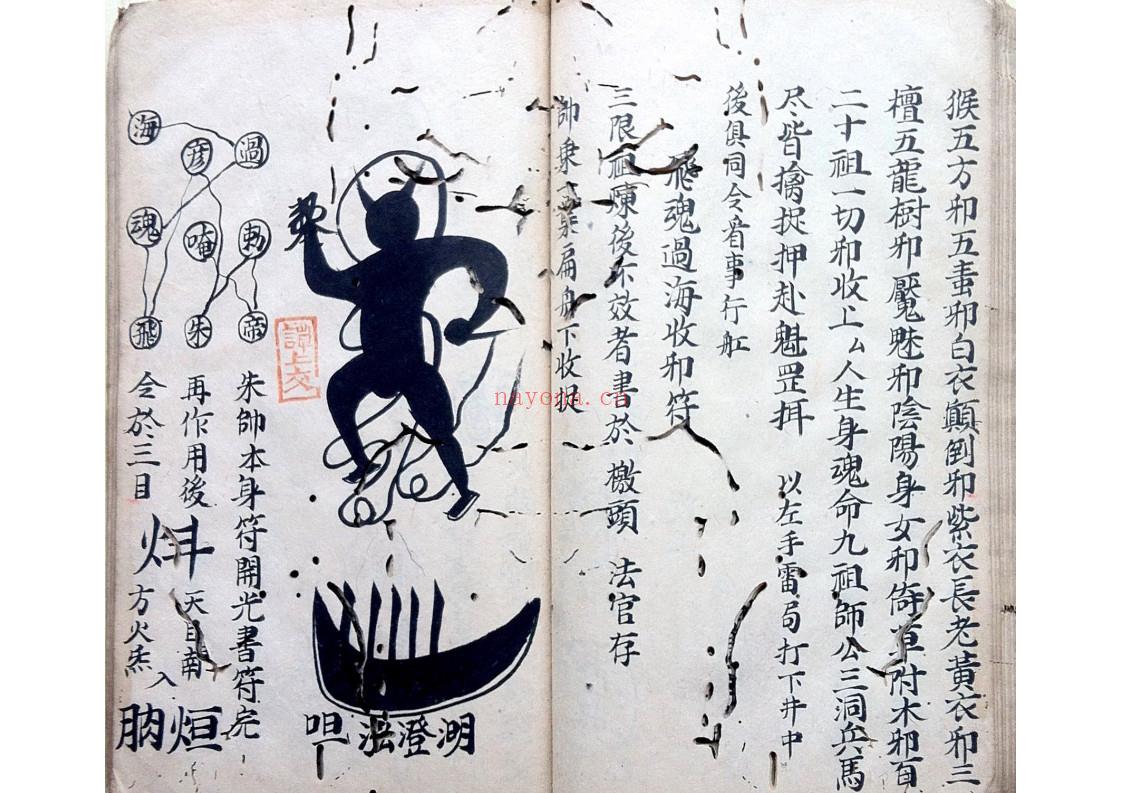 猴五方卭五畗卭白衣顛倒卭紫衣長老黃衣卭三
檀五龍樹卭魘魅卭陰陽身女卭倚草附木邪百
二十祖一切卭收上厶人生身魂命九祖師公三洞兵馬
尽皆擒捉押赴魁罡䍙 以左手雷局打下井中
後俱同令看事行舡
飛魂過海收卭符
三限祖煉後不效者書於檄頭 法官存
帥乗扁舟下收捉
湖澄法呾
譚上文
朱帥本身符開光書符完
再作用後 天目南
令於三目 方火炁入
烜肭
過彦海
勅唵魂
帝朱飛
nayona.cn